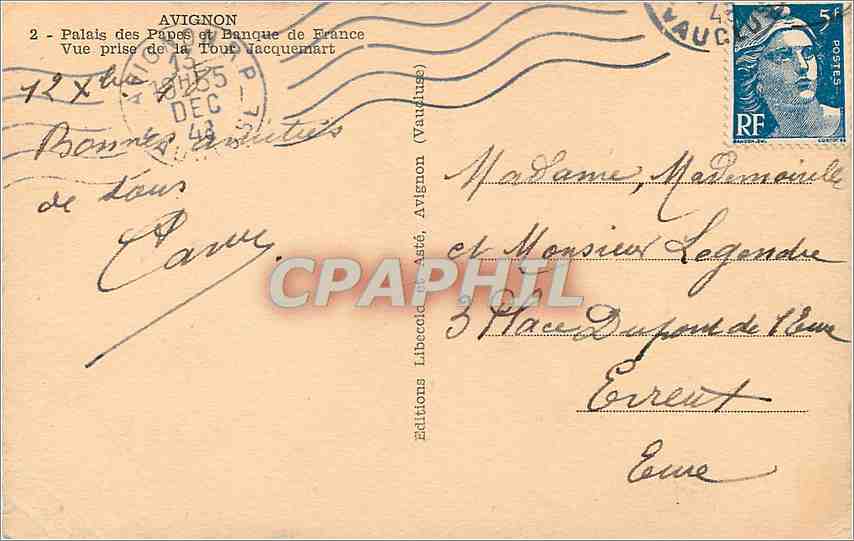 AVIGNON
2 - Palais des Papes et Banque de France
Vue prise de la Tour Jacquemart
12 Xbre
Bonnes amitiés
de tous
AVIGNON R.P.
13
DEC
VAUCLUSE
Editions Libeccio et Asté, Avignon (Vaucluse)
VAUCLUSE
5F
POSTES
RF
GANDON
Madame, Mademoiselle
et Monsieur Legendre
3 Place Dupont de l'Eure
Evreux
Eure
CPAPHIL